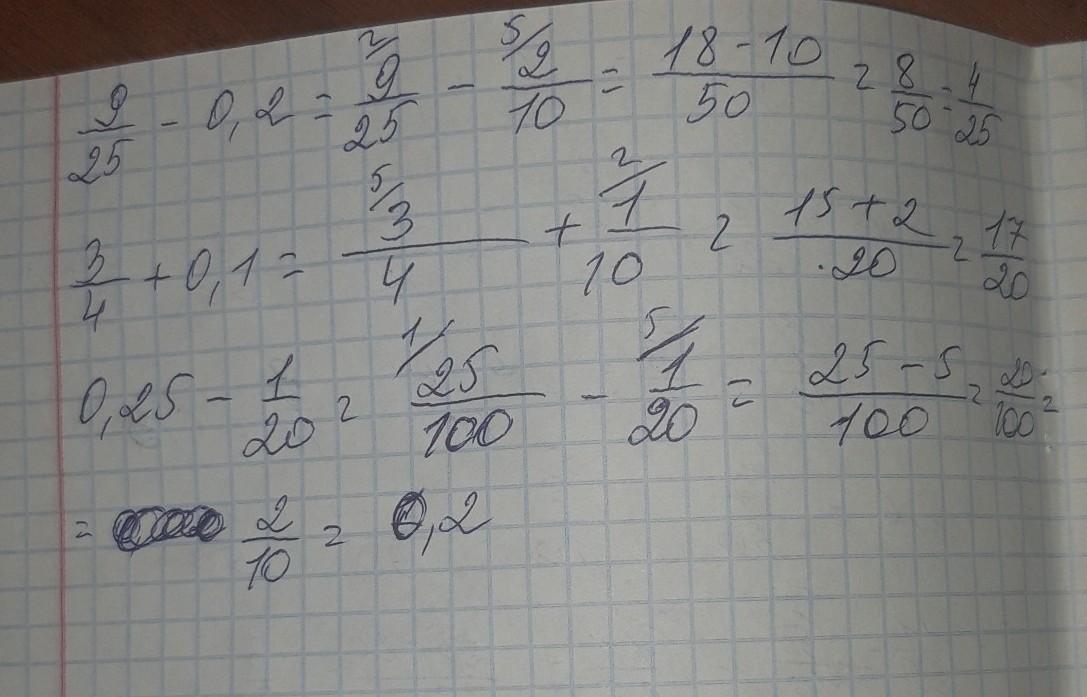 9/25 - 0,2 = 2/ 9/25 - 5/ 2/10 = (18 - 10)/50 = 8/50 = 4/25
3/4 + 0,1 = 5/ 3/4 + 2/ 1/10 = (15 + 2)/20 = 17/20
0,25 - 1/20 = 1/ 25/100 - 5/ 1/20 = (25 - 5)/100 = 20/100 =
= 2/10 = 0,2